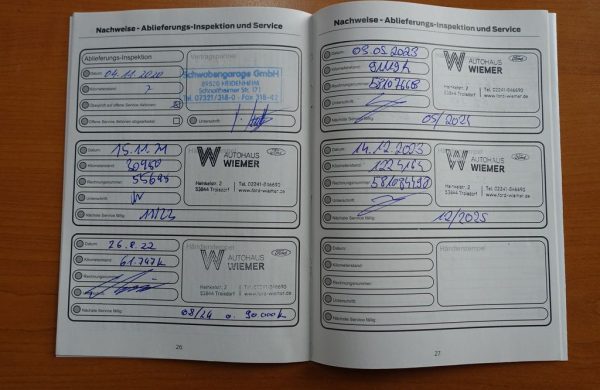 Nachweise - Ablieferungs-Inspektion und Service
Ablieferungs-Inspektion
Vertragspartner
Datum: 04.11.2020
Kilometerstand: 7
Schwabengarage GmbH
89520 HEIDENHEIM
Schnaitheimer Str. 171
Tel. 07321/318-0 Fax 318-42
Überprüft auf offene Service-Aktionen
Offene Service-Aktionen abgearbeitet
Unterschrift:
Datum: 15.11.21
Kilometerstand: 30950
Rechnungsnummer: 55698
Unterschrift:
Nächste Service fällig: 11/23
AUTOHAUS
WIEMER
Ford
Heinkelstr. 2
53844 Troisdorf
Tel. 02241-846690
www.ford-wiemer.de
Datum: 26.8.22
Kilometerstand: 61.747 k
Rechnungsnummer:
Unterschrift:
Nächste Service fällig: 08/24 o. 90.000 k
Händlerstempel
Ford
AUTOHAUS
WIEMER
Heinkelstr. 2
53844 Troisdorf
Tel. 02241-846690
www.ford-wiemer.de
26
Nachweise - Ablieferungs-Inspektion und Service
Datum: 09.05.2023
Kilometerstand:
Rechnungsnummer:
Unterschrift:
Nächste Service fällig: 05/2025
AUTOHAUS
WIEMER
Ford
Heinkelstr. 2
53844 Troisdorf
Tel. 02241-846690
www.ford-wiemer.de
Datum: 14.12.2023
Kilometerstand:
Rechnungsnummer:
Unterschrift:
Nächste Service fällig: 12/2025
AUTOHAUS
WIEMER
Ford
Heinkelstr. 2
53844 Troisdorf
Tel. 02241-846690
www.ford-wiemer.de
Datum:
Kilometerstand:
Rechnungsnummer:
Unterschrift:
Nächste Service fällig:
Händlerstempel
27